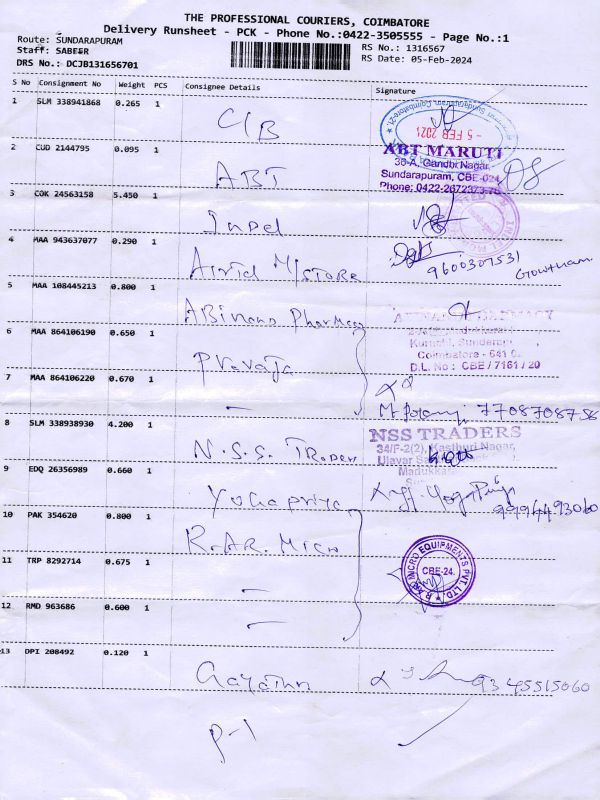 THE PROFESSIONAL COURIERS, COIMBATORE
Delivery Runsheet - PCK - Phone No.:0422-3505555 - Page No.:1
Route: SUNDARAPURAM
Staff: SABEER
RS No.: 1316567
RS Date: 05-Feb-2024
DRS No.: DCJB131656701
S No Consignment No Weight PCS Consignee Details Signature
1 SLM 338941868 0.265 1 C/B
- 5 FEB 202
2 CUD 2144795 0.095 1 ABT
ABT MARUTI
36-A, Gandhi Nagar,
Sundarapuram, CBE-024
Phone: 0422-2672373
3 COK 24563158 5.450 1
4 MAA 943637077 0.290 1 M/STORE
9600307531
Gowtham
5 MAA 108445213 0.800 1 ABinana Pharmacy
Coimbatore - 641 0
D.L. No : CBE / 7161 / 20
6 MAA 864106190 0.650 1
7 MAA 864106220 0.670 1 -
7708708758
8 SLM 338938930 4.200 1 N.S.S. Traders
NSS TRADERS
34/F-2(2), Kasthuri Nagar,
9 EDQ 26356989 0.660 1 Yogapriya
10 PAK 354620 0.800 1 R.AR. Micro
R AR MICRO EQUIPMENTS PVT. LTD.
CBE-24.
11 TRP 8292714 0.675 1 -
12 RMD 963686 0.600 1 -
13 DPI 208492 0.120 1 Gayathri 9345515060
P-1